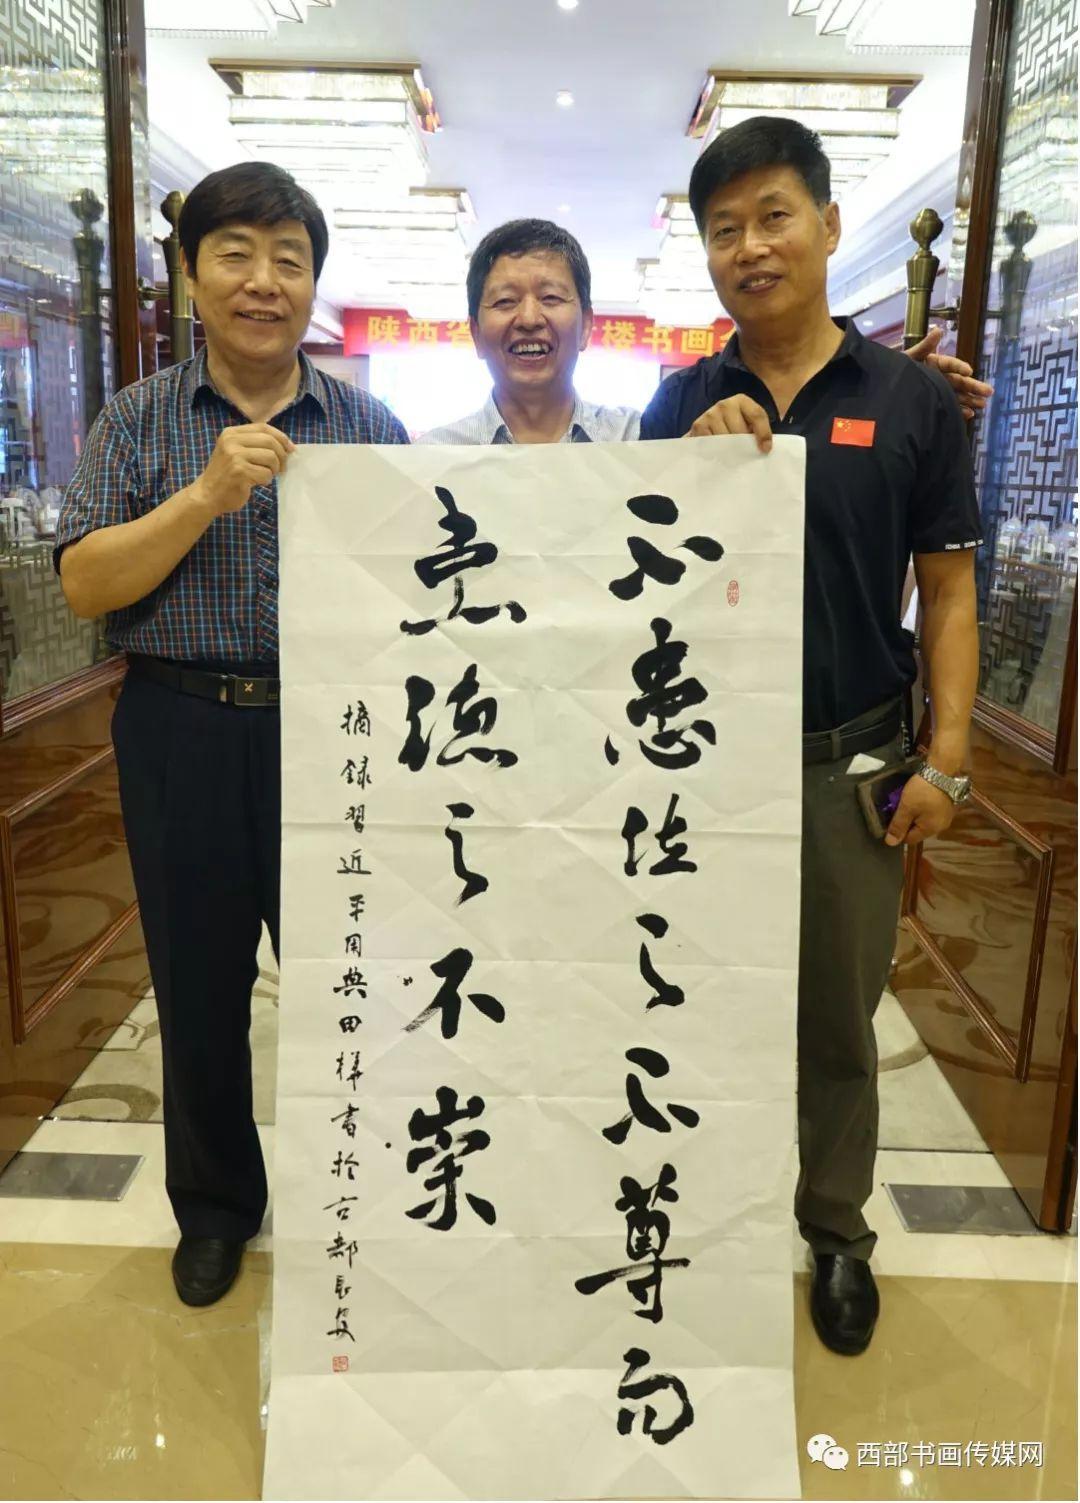 陕西省
楼书画
不患位之不尊而
患德之不崇
摘录習近平用典田樺書於古都長安
西部书画传媒网